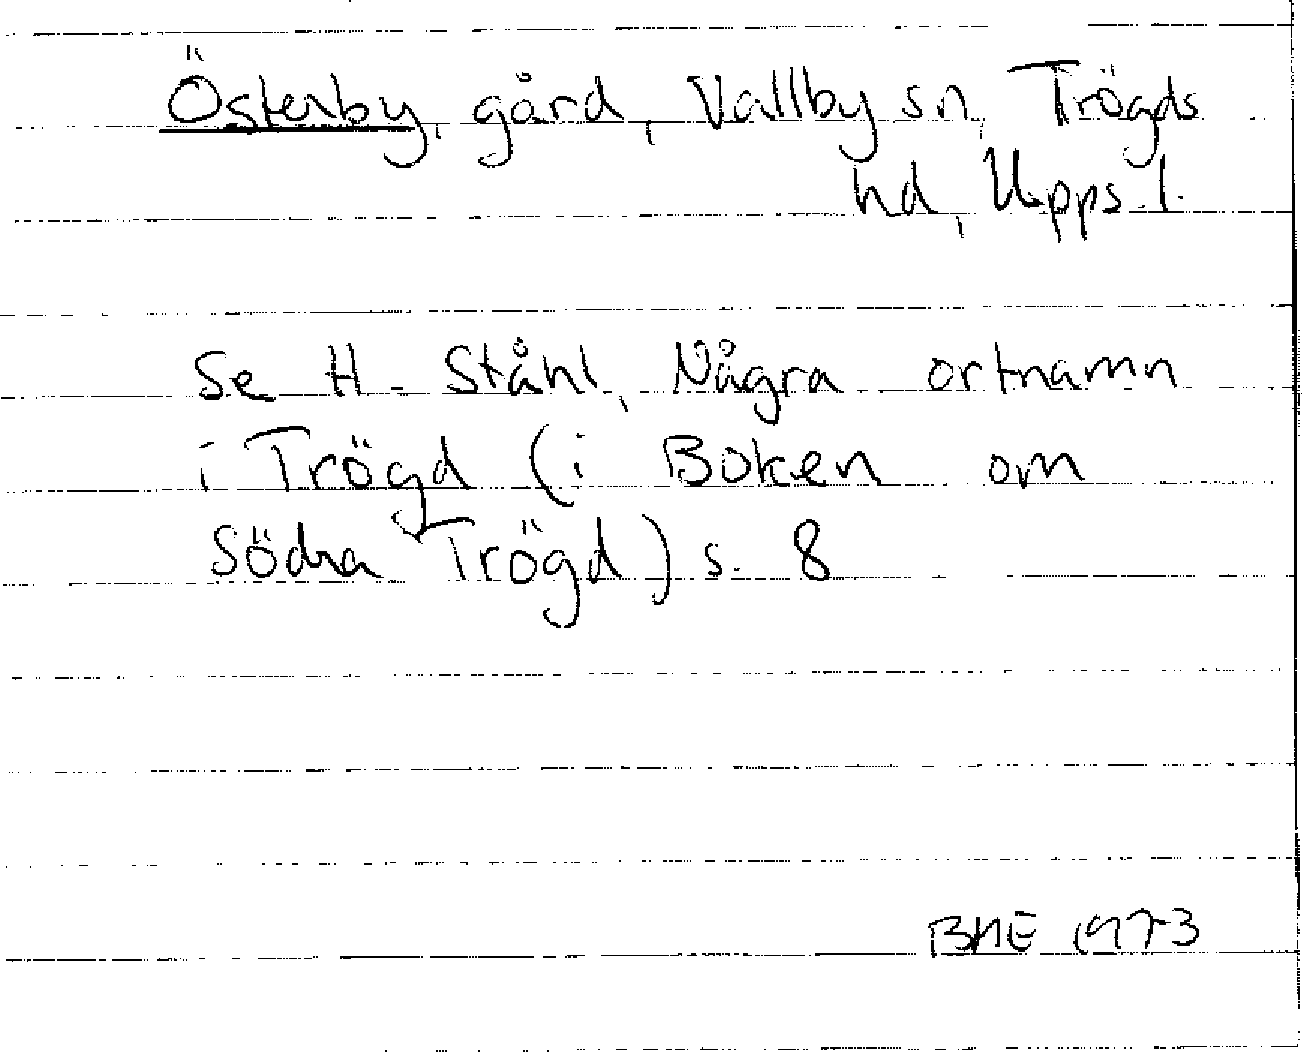 Österby, gård, Vallby sn, Trögds
hd, Upps. l.
Se H. Ståhl, Några ortnamn
i Trögd (i Boken om
Södra Trögd) s. 8
1973